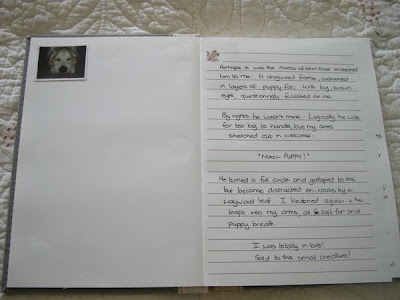 Perhaps it was the mass of skin that endeared
him to me. A dogwood frame, cushioned
in layers of puppy fat, with big, brown
eyes, questioningly focussed on me.
By rights he wasn't mine. Logically he was
far too big to handle, but my arms
stretched out in welcome.
PUPPY?"
He turned a full circle and galloped to me
but became distracted en route by a
wayward leaf. I beckoned again & he
leapt into my arms, all soft fur and
puppy breath.
I was totally in love!
Sold to this small creature!